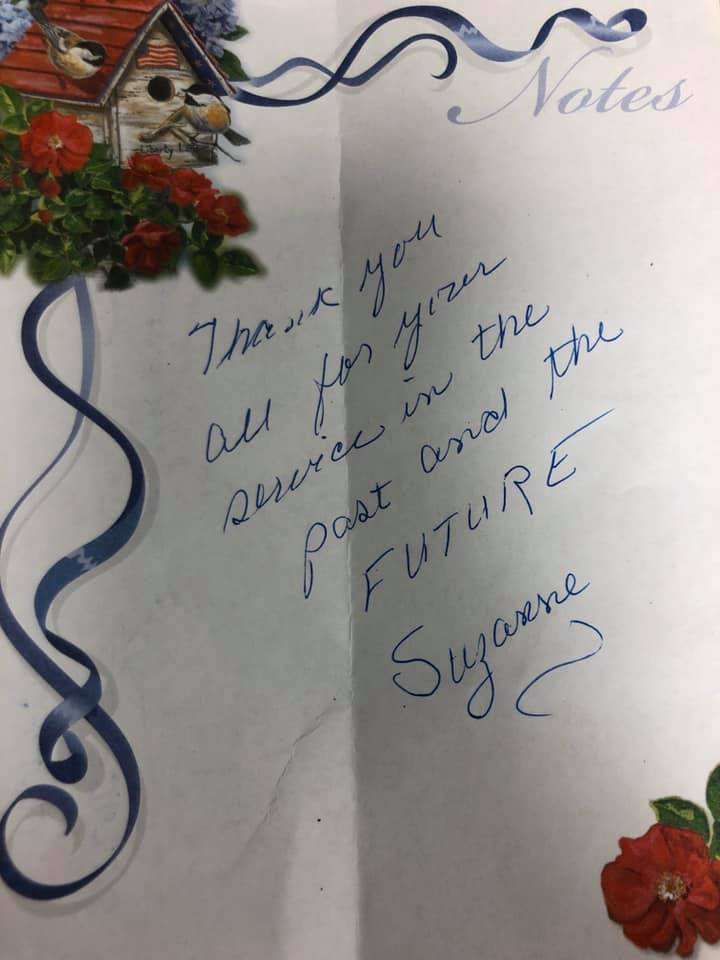 Notes
Thank you
all for your
service in the
past and the
FUTURE
Suzanne